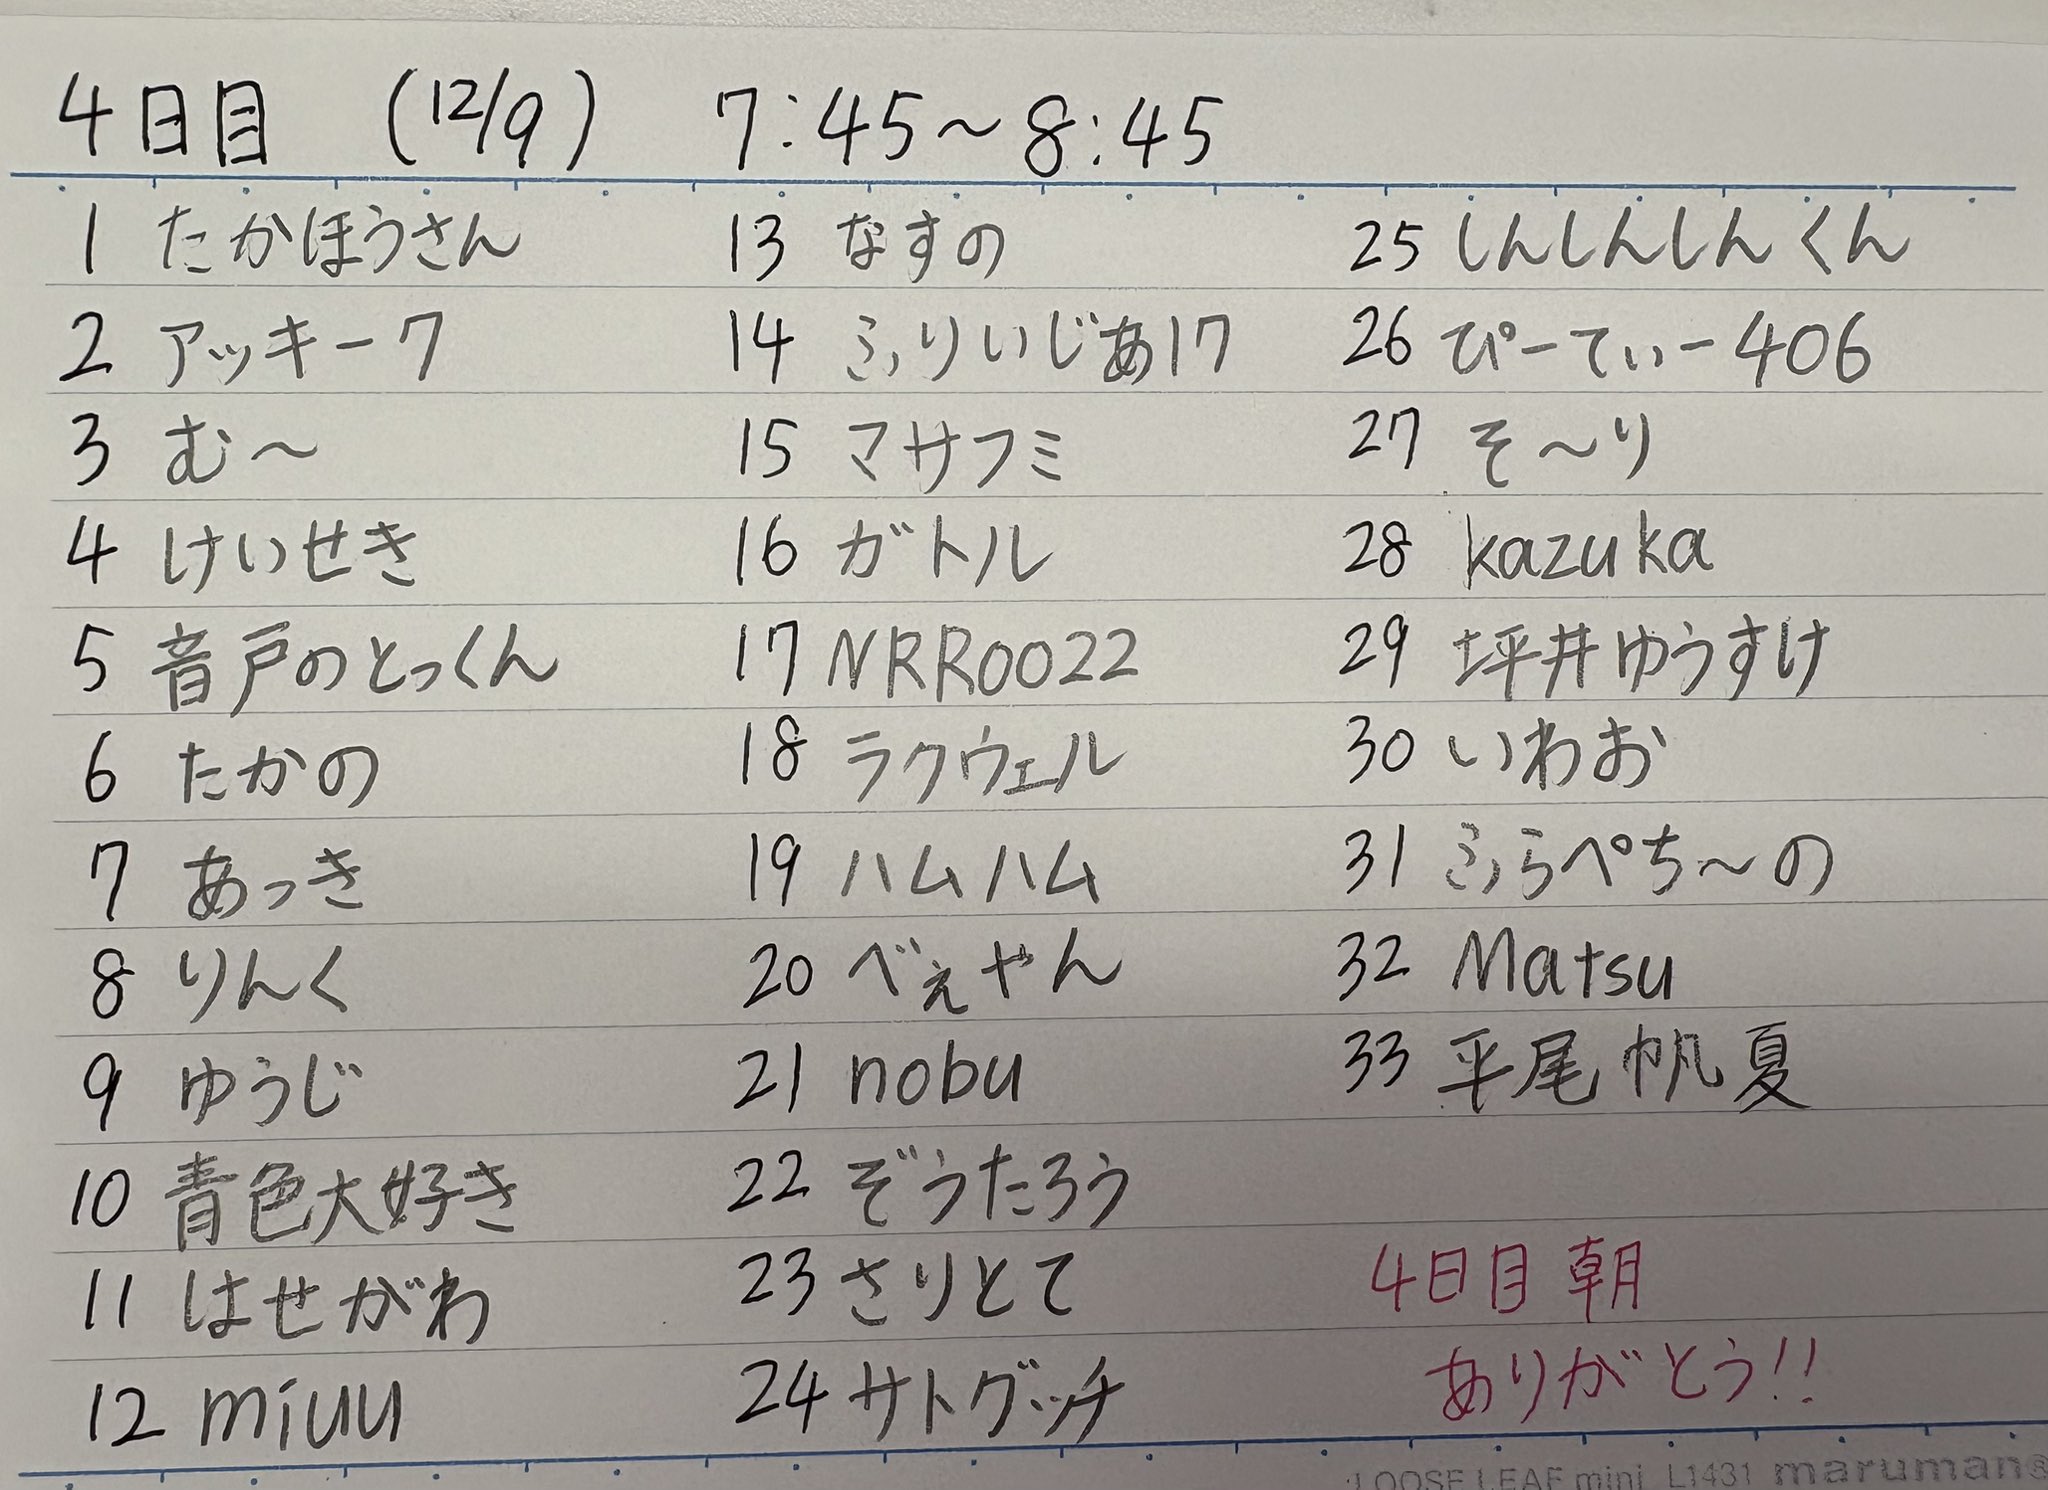 4日目 (12/9) 7:45〜8:45
1 たかほうさん
2 アッキー7
3 む〜
4 けいせき
5 音戸のとっくん
6 たかの
7 あっき
8 りんく
9 ゆうじ
10 青色大好き
11 はせがわ
12 miuu
13 なすの
14 ふりいじあ17
15 マサフミ
16 ガトル
17 NRR0022
18 ラクウェル
19 ハムハム
20 べぇやん
21 nobu
22 ぞうたろう
23 さりとて
24 サトグッチ
25 しんしんしんくん
26 ぴーてぃー406
27 そ〜り
28 kazuka
29 坪井ゆうすけ
30 いわお
31 ふらぺち〜の
32 Matsu
33 平尾帆夏
4日目朝
ありがとう!!
LOOSE LEAF mini L1431 maruman®